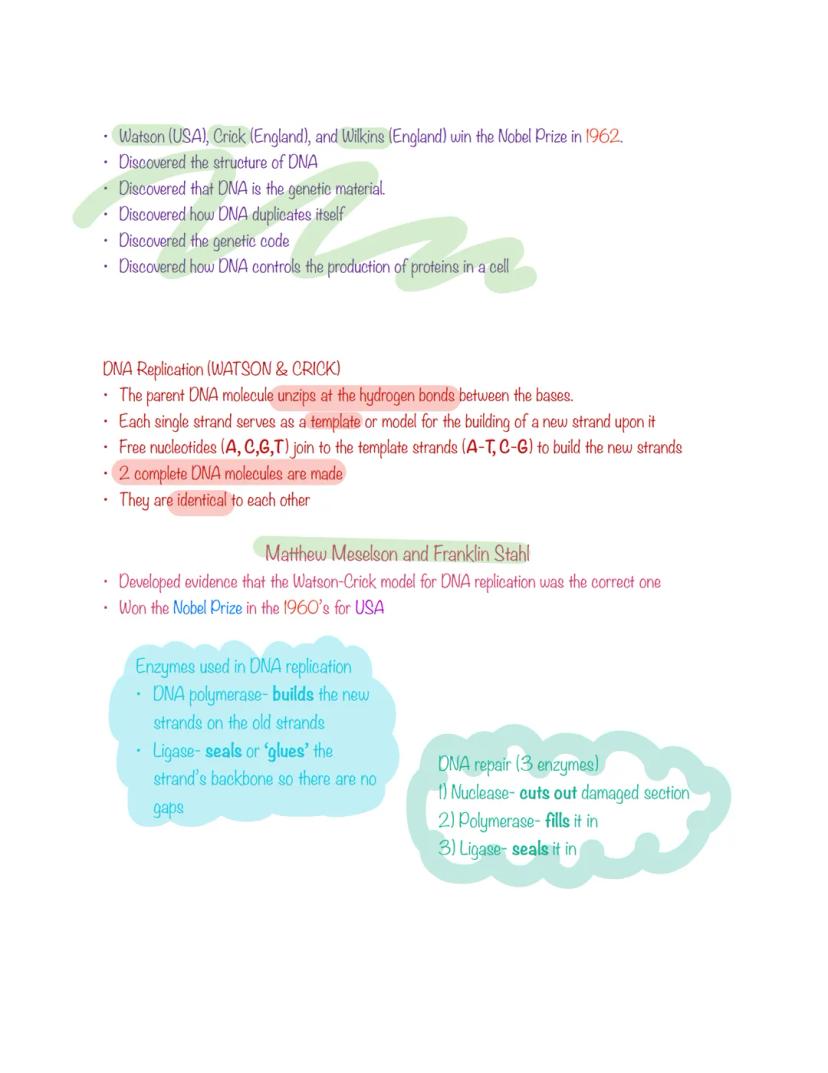 • Watson (USA), Crick (England), and Wilkins (England) win the Nobel Prize in 1962.
• Discovered the structure of DNA
• Discovered that DNA is the genetic material.
• Discovered how DNA duplicates itself
• Discovered the genetic code
• Discovered how DNA controls the production of proteins in a cell
DNA Replication (WATSON & CRICK)
• The parent DNA molecule unzips at the hydrogen bonds between the bases.
• Each single strand serves as a template or model for the building of a new strand upon it
• Free nucleotides (A, C,G,T) join to the template strands (A-T, C-G) to build the new strands
• 2 complete DNA molecules are made
• They are identical to each other
Matthew Meselson and Franklin Stahl
• Developed evidence that the Watson-Crick model for DNA replication was the correct one
• Won the Nobel Prize in the 1960's for USA
Enzymes used in DNA replication
• DNA polymerase- builds the new
strands on the old strands
• Ligase- seals or 'glues' the
strand's backbone so there are no
gaps
DNA repair (3 enzymes)
1) Nuclease- cuts out damaged section
2) Polymerase- fills it in
3) Ligase- seals it in